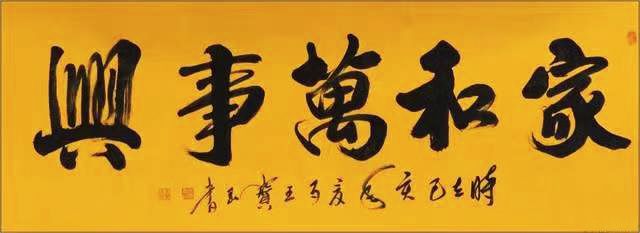 家和萬事興
時在己亥 王寶玉書